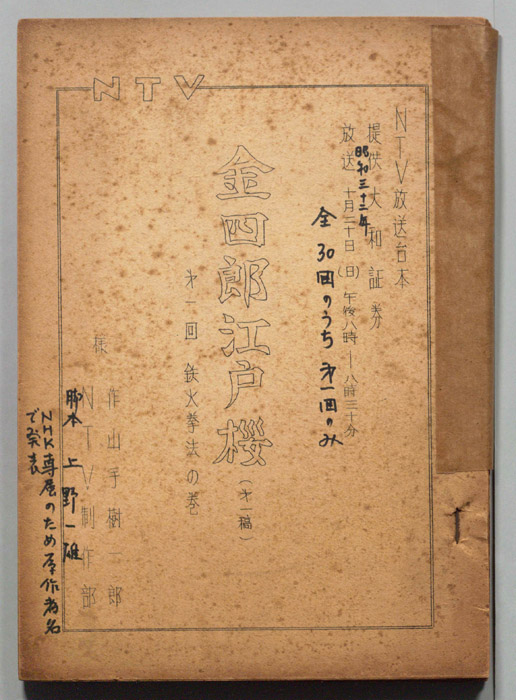 NTV
NTV放送台本
提供 大和証券
昭和三十三年
放送 十月二十日(日) 午後八時―八時三十分
全30回のうち 㐧一回のみ
金四郎江戸桜(㐧一稿)
㐧一回 鉄火拳法の巻
作 山手樹一郎
NTV制作部
様
脚本 上野一雄
NHK専属のため原作者名
で発表